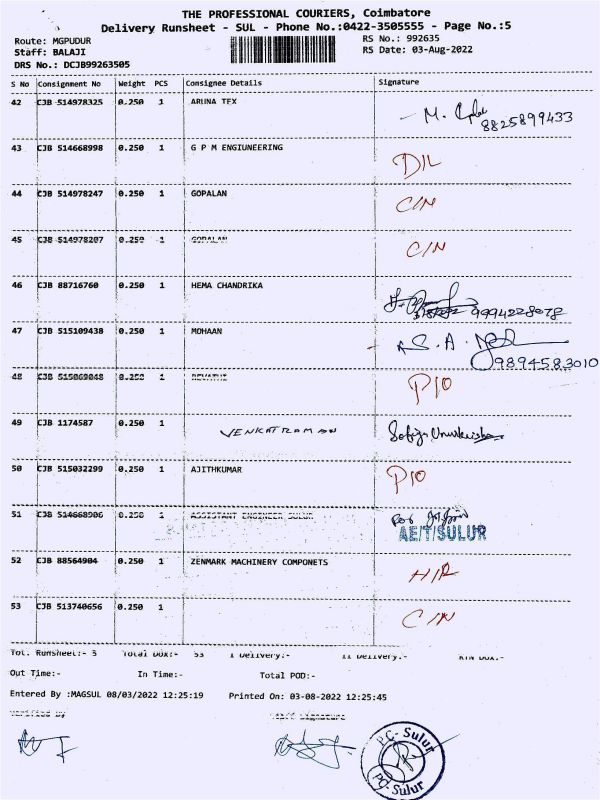 THE PROFESSIONAL COURIERS, Coimbatore
Delivery Runsheet - SUL - Phone No.:0422-3505555 - Page No.:5
Route: MGPUDUR
RS No.: 992635
Staff: BALAJI
RS Date: 03-Aug-2022
DRS No.: DCJB99263505
S No Consignment No Weight PCS Consignee Details Signature
42 CJB 514978325 0.250 1 ARUNA TEX M. 8825899433
43 CJB 514668998 0.250 1 G P M ENGIUNEERING D/L
44 CJB 514978247 0.250 1 GOPALAN C/N
45 CJB 514978207 0.250 1 GOPALAN C/N
46 CJB 88716760 0.250 1 HEMA CHANDRIKA 9994228078
47 CJB 515109438 0.250 1 MOHAAN S.A. 9894583010
48 CJB 515069048 0.250 1 REVATHI P/O
49 CJB 1174587 0.250 1 VENKATRAMAN
50 CJB 515032299 0.250 1 AJITHKUMAR P/O
51 CJB 514668906 0.250 1 ASSISTANT ENGINEER SULUR For
AE/T/SULUR
52 CJB 88564904 0.250 1 ZENMARK MACHINERY COMPONETS H/R
53 CJB 513740656 0.250 1 C/N
Tot. Runsheet:- 5 Total Dox:- 53 I Delivery:- II Delivery:- RTN Dox:-
Out Time:- In Time:- Total POD:-
Entered By :MAGSUL 08/03/2022 12:25:19 Printed On: 03-08-2022 12:25:45
Verified By Staff Signature
PC- Sulur
PC- Sulur